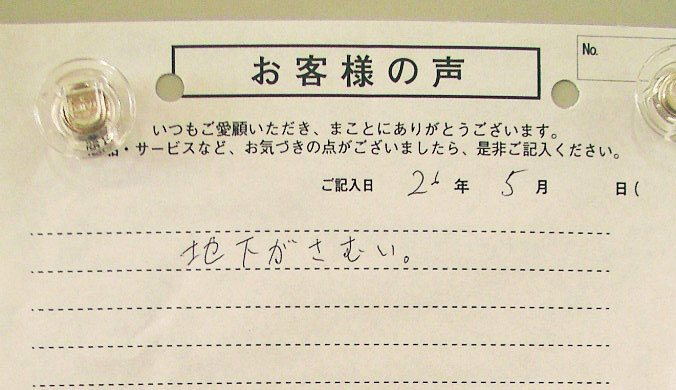 お客様の声
No.
いつもご愛顧いただき、まことにありがとうございます。
・サービスなど、お気づきの点がございましたら、是非ご記入ください。
ご記入日 26年 5月 日(
地下がさむい。